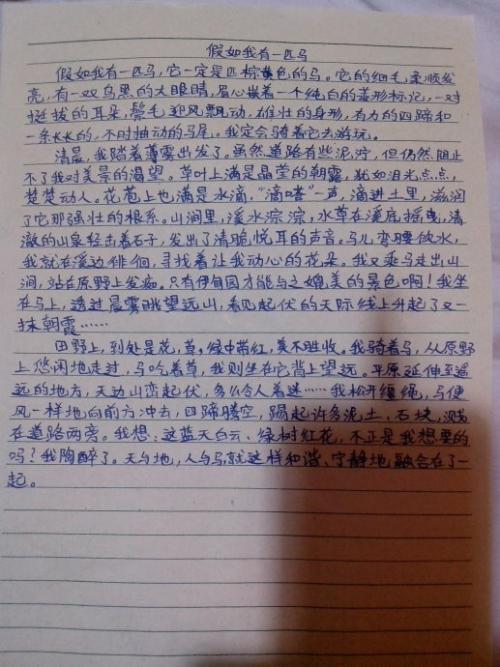 假如我有一匹马
假如我有一匹马,它一定是匹棕黄色的马。它的细毛柔顺发
亮,有一双乌黑的大眼睛,眉心嵌着一个纯白的菱形标记,一对
挺拔的耳朵,鬃毛迎风飘动,雄壮的身形,有力的四蹄和
一条长长的,不时抽动的马尾。我定会骑着它去游玩。
清晨,我踏着薄雾出发了。虽然道路有些泥泞,但仍然阻止
不了我对美景的渴望。草叶上满是晶莹的朝露,犹如泪光点点,
楚楚动人。花苞上也满是水滴,“滴嗒”一声,滴进土里,滋润
了它那强壮的根系。山涧里,溪水淙淙,水草在溪底摇曳,清
澈的山泉轻击着石子,发出了清脆悦耳的声音。马儿弯腰饮水,
我就在溪边徘徊,寻找着让我动心的花朵。我又乘马走出山
涧,站在原野上发痴。只有伊甸园才能与之媲美的景色啊!我坐
在马上,透过晨雾眺望远山,看见起伏的天际线上升起了又一
抹朝霞……
田野上,到处是花,草,绿中带红,美不胜收。我骑着马,从原野
上悠闲地走过,马吟着草,我则坐在它背上望远。平原延伸至遥
远的地方,天边山峦起伏,多么令人着迷……我松开缰绳,马便
风一样地向前方冲去,四蹄腾空,踢起许多泥土、石块,溅
在道路两旁。我想:这蓝天白云、绿树红花,不正是我想要的
吗?我陶醉了。天与地,人与马就这样和谐、宁静地融合在了一
起。